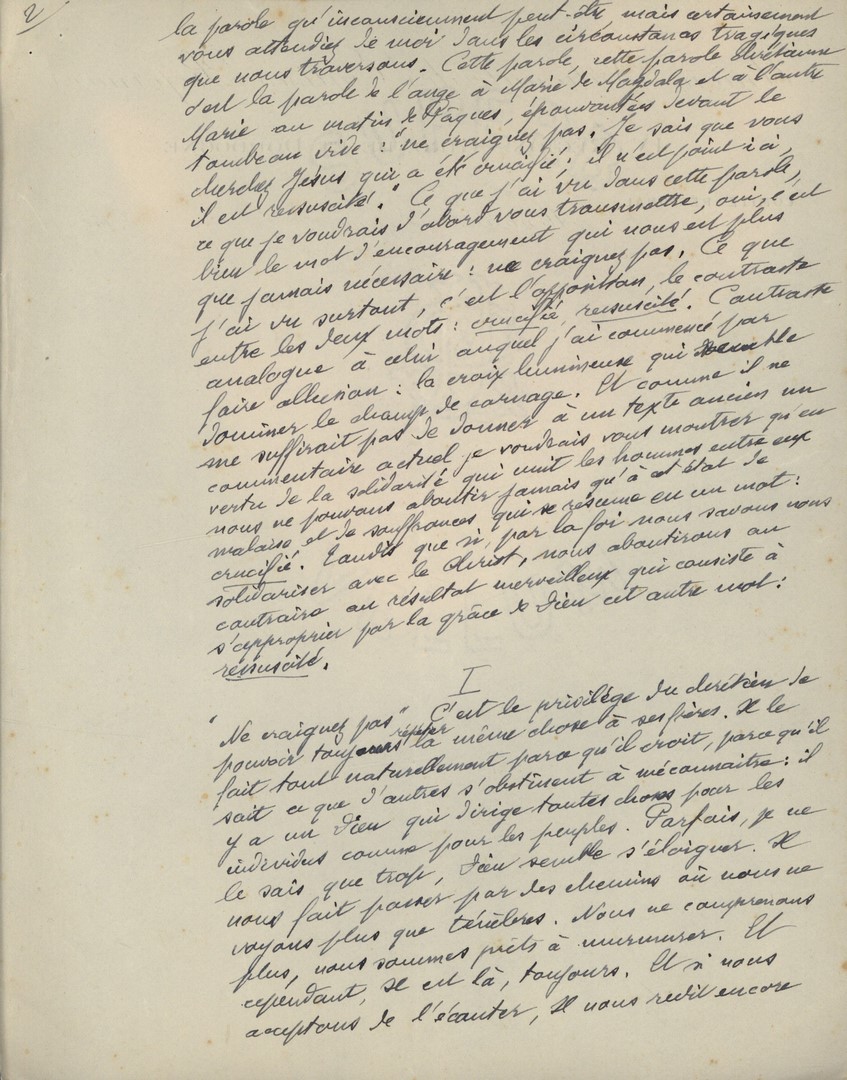 2/
la parole qu'inconsciemment peut-être mais certainement
vous attendiez de moi dans les circonstances tragiques
que nous traversons. Cette parole, cette parole chrétienne
c'est la parole de l'ange à Marie de Magdala et à l'autre
Marie au matin de Pâques, épouvantées devant le
tombeau vide : "ne craignez pas. Je sais que vous
cherchez Jésus qui a été crucifié ; il n'est point ici,
il est ressuscité." Ce que j'ai vu dans cette parole,
ce que je voudrais d'abord vous transmettre, oui, c'est
bien le mot d'encouragement qui nous est plus
que jamais nécessaire : ne craignez pas. Ce que
j'ai vu surtout, c'est l'opposition, le contraste
entre les deux mots : crucifié ressuscité. Contraste
analogue à celui auquel j'ai commencé par
faire allusion : la croix lumineuse qui semble
dominer le champ de carnage. Et comme il ne
me suffirait pas de donner à un texte ancien un
commentaire actuel je voudrais vous montrer qu'en
vertu de la solidarité qui unit les hommes entre eux
nous ne pouvons aboutir jamais qu'à cet état de
malaise et de souffrances qui se résume en un mot :
crucifié. Tandis que si, par la foi nous savons nous
solidariser avec le Christ, nous aboutirons au
contraire au résultat merveilleux qui consiste à
s'approprier par la grâce de Dieu cet autre mot :
ressuscité.
I
"Ne craignez pas" C'est le privilège du chrétien de
pouvoir toujours répéter la même chose à ses frères. Il le
fait tout naturellement parce qu'il croit, parce qu'il
sait ce que d'autres s'obstinent à méconnaitre : il
y a un Dieu qui dirige toutes choses pour les
individus comme pour les peuples. Parfois, je ne
le sais que trop, Dieu semble s'éloigner. Il
nous fait passer par des chemins où nous ne
voyons plus que ténèbres. Nous ne comprenons
plus, nous sommes prêts à murmurer. Et
cependant, Il est là, toujours. Et si nous
acceptons de l'écouter, Il nous redit encore